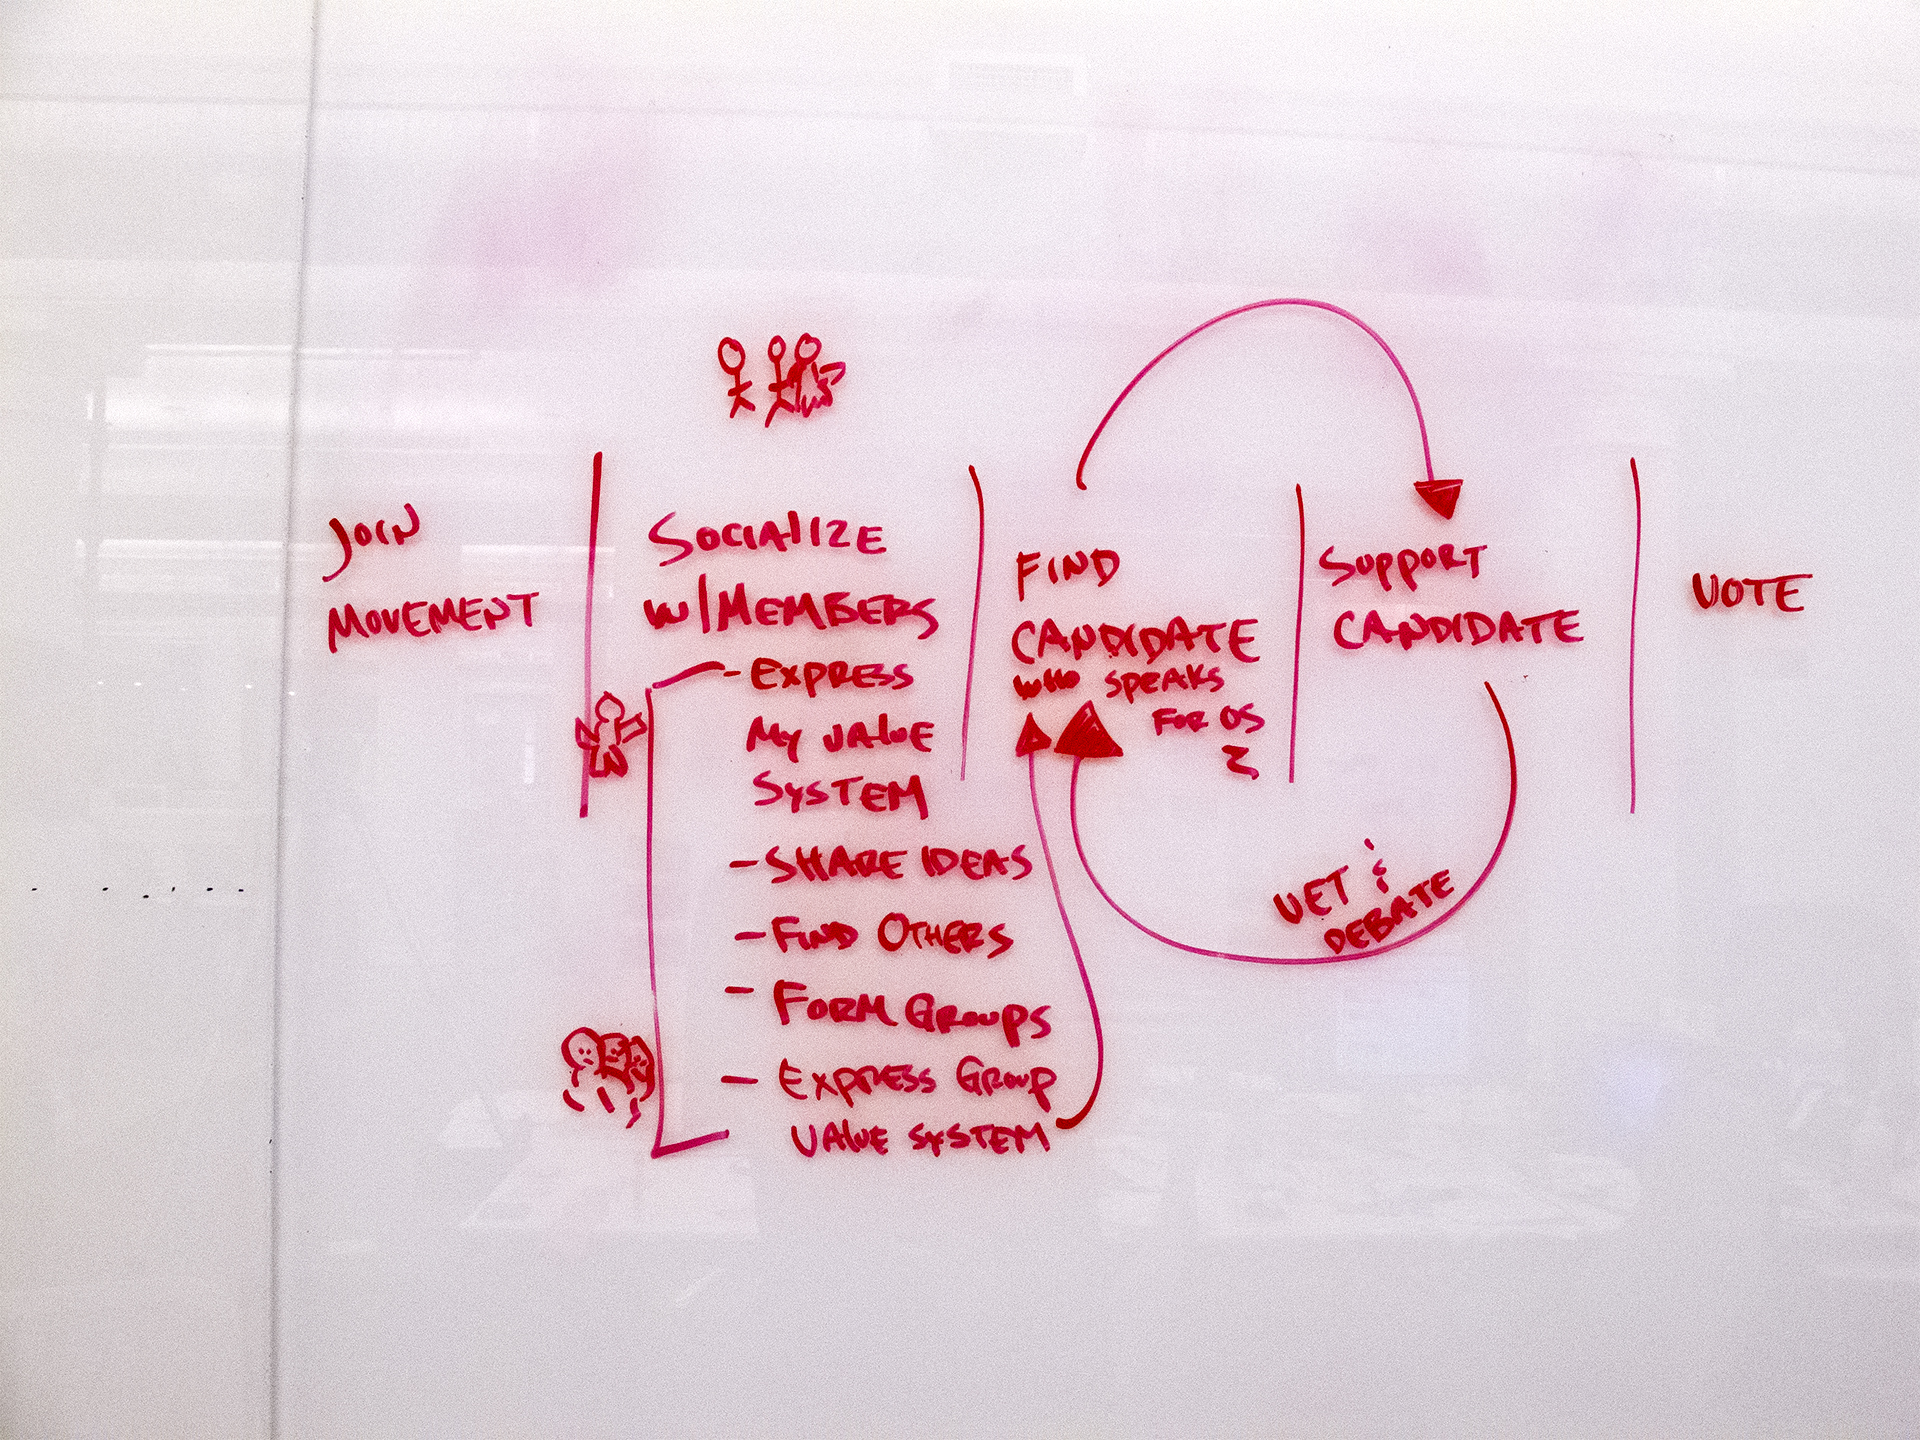 JOIN
MOVEMENT
SOCIALIZE
W/MEMBERS
- EXPRESS
MY VALUE
SYSTEM
- SHARE IDEAS
- FIND OTHERS
- FORM GROUPS
- EXPRESS GROUP
VALUE SYSTEM
FIND
CANDIDATE
WHO SPEAKS
FOR US
SUPPORT
CANDIDATE
VET &
DEBATE
VOTE